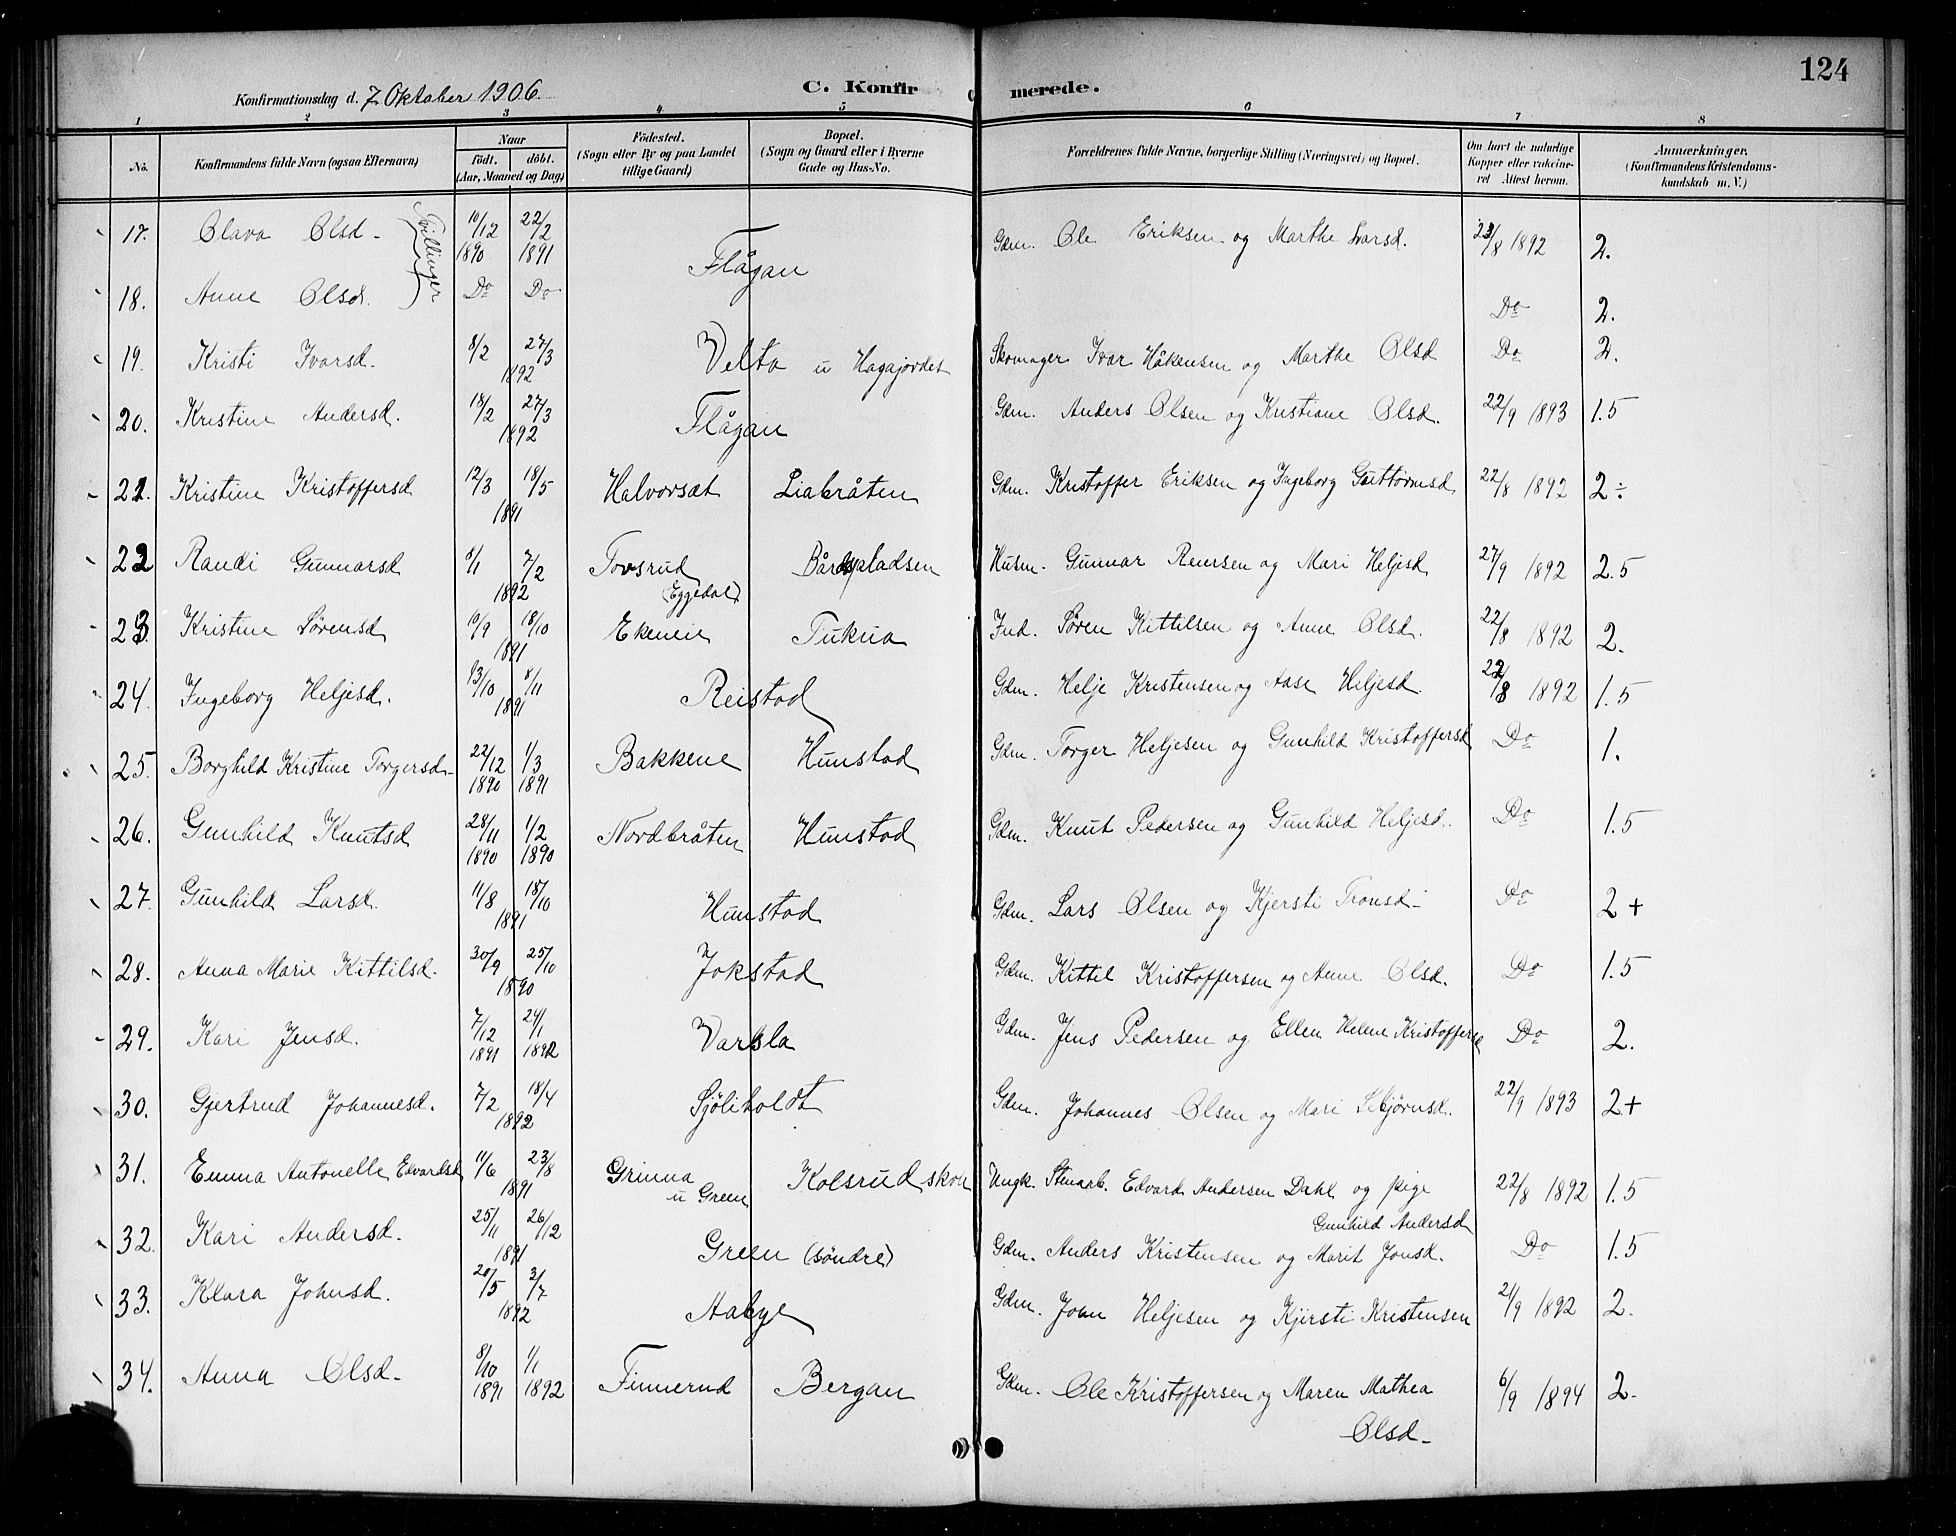 124
Konfirmationsdag d. 7 Oktober 1906. C. Konfirmerede.
1 2 3 4 5 6 7 8
No. Konfirmandens fulde Navn (ogsaa Efternavn) Naar födt. döbt. (Aar, Maaned og Dag) Födested. (Sogn eller By og paa Landet tillige Gaard) Bopæl. (Sogn og Gaard eller i Byerne Gade og Hus-No. Forældrenes fulde Navne, borgerlige Stilling (Næringsvei) og Bopæl. Om havt de naturlige Kopper eller vakcineret Attest herom. Anmærkninger. (Konfirmandens Kristendomskundskab m. V.)
17. Olava Olsd. Tvillinger 10/12 1890 22/2 1891 Flågan Gdm. Ole Eriksen og Marthe Ivarsd. 23/8 1892 2.
18. Anne Olsd. Do Do Do 2.
19. Kristi Ivarsd. 8/2 27/3 1892 Velta u Hagajordet Skomager Ivar Håkensen og Marthe Olsd Do 2.
20. Kristine Andersd. 18/2 27/3 1892 Flågan Gdm. Anders Olsen og Kristiane Olsd. 22/9 1893 1.5
21. Kristine Kristoffersd 12/3 18/5 1891 Halvorsæt Liabråten Gdm. Kristoffer Eriksen og Ingeborg Guttormsd 22/8 1892 2÷
22 Randi Gunnarsd 8/1 7/2 1892 Tovsrud (Eggedal) Bårdspladsen Husm. Gunnar Reiersen og Mari Heljesd 27/9 1892 2.5
23. Kristine Sørensd 10/9 18/10 1891 Ekeneie Tukua Ind. Søren Kittilsen og Anne Olsd. 22/8 1892 2.
24. Ingeborg Heljesd. 13/10 8/11 1891 Reistad Gdm. Helje Kristensen og Aase Heljesd. 22/8 1892 1.5
25. Borghild Kristine Torgersd. 22/12 1890 1/3 1891 Bakkene Hunstad Gdm. Torger Heljesen og Gunhild Kristoffersd Do 1.
26. Gunhild Knutsd 28/11 1890 1/2 1890 Nordbråten Hunstad Gdm. Knut Pedersen og Gunhild Heljesd. Do 1.5
27. Gunhild Larsd. 11/8 18/10 1891 Hunstad Gdm. Lars Olsen og Kjersti Tronsd. Do 2+
28. Anna Marie Kittilsd. 30/9 25/10 1890 Jokstad Gdm. Kittil Kristoffersen og Anne Olsd. Do 1.5
29. Kari Jensd. 7/12 1891 24/1 1892 Varsla Gdm. Jens Pedersen og Ellen Helene Kristoffersd Do 2.
30. Gjertrud Johannesd. 7/2 18/4 1892 Sjøliholdt Gdm. Johannes Olsen og Mari Sebjørnsd. 22/9 1893 2+
31. Emma Antonette Edvardsd 11/6 23/8 1891 Grimna u Green Kolsrud skole Ungk. Stenarb. Edvard Andersen Dahl og pige Gunhild Andersd 22/8 1892 1.5
32. Kari Andersd. 25/11 26/12 1891 Green (søndre) Gdm. Anders Kristensen og Marit Jonsd. Do 1.5
33. Klara Johnsd. 20/5 3/7 1892 Aabye Gdm. John Heljesen og Kjersti Kristensen 21/9 1892 2.
34. Anna Olsd. 8/10 1891 1/1 1892 Finnerud Bergan Gdm. Ole Kristoffersen og Maren Mathea Olsd. 6/9 1894 2.